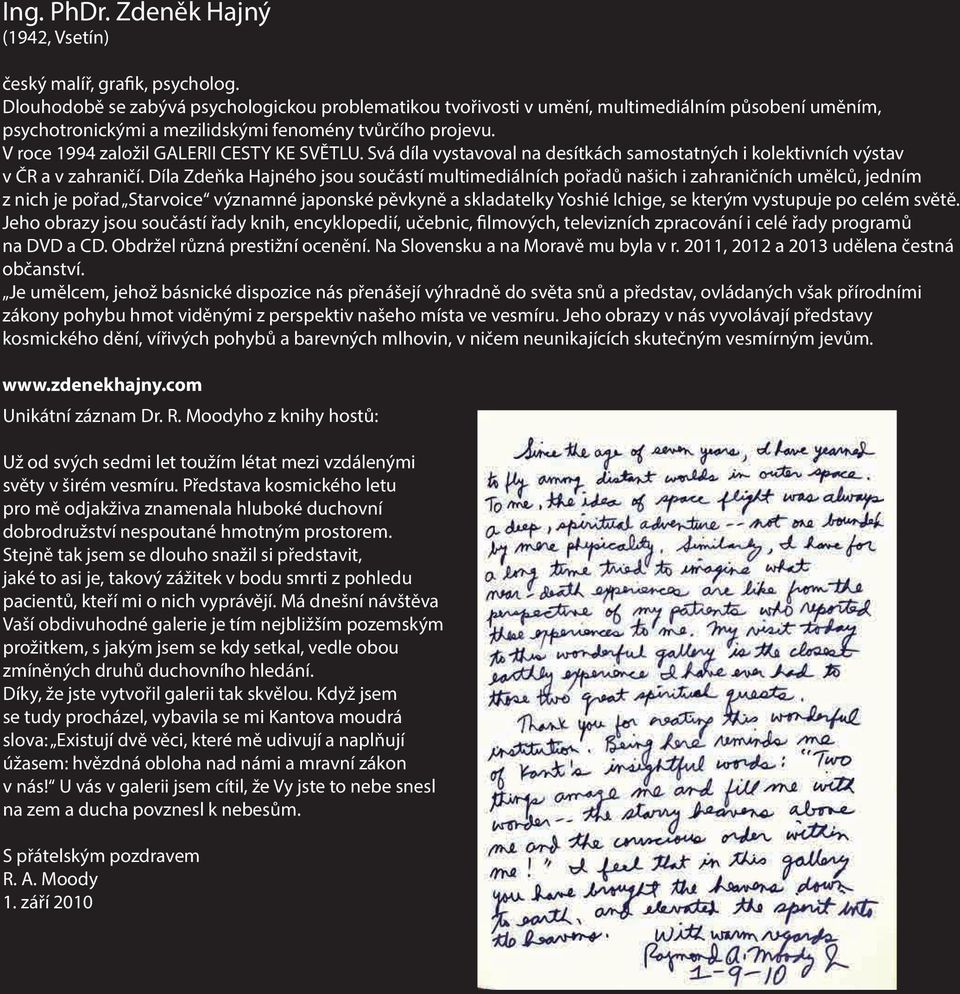 Ing. PhDr. Zdeněk Hajný
(1942, Vsetín)
český malíř, grafik, psycholog.
Dlouhodobě se zabývá psychologickou problematikou tvořivosti v umění, multimediálním působení uměním,
psychotronickými a mezilidskými fenomény tvůrčího projevu.
V roce 1994 založil GALERII CESTY KE SVĚTLU. Svá díla vystavoval na desítkách samostatných i kolektivních výstav
v ČR a v zahraničí. Díla Zdeňka Hajného jsou součástí multimediálních pořadů našich i zahraničních umělců, jedním
z nich je pořad „Starvoice“ významné japonské pěvkyně a skladatelky Yoshié Ichige, se kterým vystupuje po celém světě.
Jeho obrazy jsou součástí řady knih, encyklopedií, učebnic, filmových, televizních zpracování i celé řady programů
na DVD a CD. Obdržel různá prestižní ocenění. Na Slovensku a na Moravě mu byla v r. 2011, 2012 a 2013 udělena čestná
občanství.
„Je umělcem, jehož básnické dispozice nás přenášejí výhradně do světa snů a představ, ovládaných však přírodními
zákony pohybu hmot viděnými z perspektiv našeho místa ve vesmíru. Jeho obrazy v nás vyvolávají představy
kosmického dění, vířivých pohybů a barevných mlhovin, v ničem neunikajících skutečným vesmírným jevům.
www.zdenekhajny.com
Unikátní záznam Dr. R. Moodyho z knihy hostů:
Už od svých sedmi let toužím létat mezi vzdálenými
světy v širém vesmíru. Představa kosmického letu
pro mě odjakživa znamenala hluboké duchovní
dobrodružství nespoutané hmotným prostorem.
Stejně tak jsem se dlouho snažil si představit,
jaké to asi je, takový zážitek v bodu smrti z pohledu
pacientů, kteří mi o nich vyprávějí. Má dnešní návštěva
Vaší obdivuhodné galerie je tím nejbližším pozemským
prožitkem, s jakým jsem se kdy setkal, vedle obou
zmíněných druhů duchovního hledání.
Díky, že jste vytvořil galerii tak skvělou. Když jsem
se tudy procházel, vybavila se mi Kantova moudrá
slova: „Existují dvě věci, které mě udivují a naplňují
úžasem: hvězdná obloha nad námi a mravní zákon
v nás!“ U vás v galerii jsem cítil, že Vy jste to nebe snesl
na zem a ducha povznesl k nebesům.
S přátelským pozdravem
R. A. Moody
1. září 2010
Since the age of seven years, I have yearned
to fly among distant worlds in outer space.
To me, the idea of space flight was always
a deep, spiritual adventure -- not one bounded
by mere physicality. Similarly, I have for
a long time tried to imagine what
near-death experiences are like from the
perspective of my patients who reported
these experiences to me. My visit today
to this wonderful gallery is the closest
earthly experience I have ever had to
those two great spiritual quests.
Thank you for creating this wonderful
institution. Being here reminds me
of Kant's insightful words: "Two
things amaze me and fill me with
wonder -- the starry heavens above
me and the conscious order within
me!" I feel that in this gallery
you have brought the heavens down
to earth, and elevated the spirit into
the heavens.
With warm regards
Raymond A. Moody Jr
1-9-10